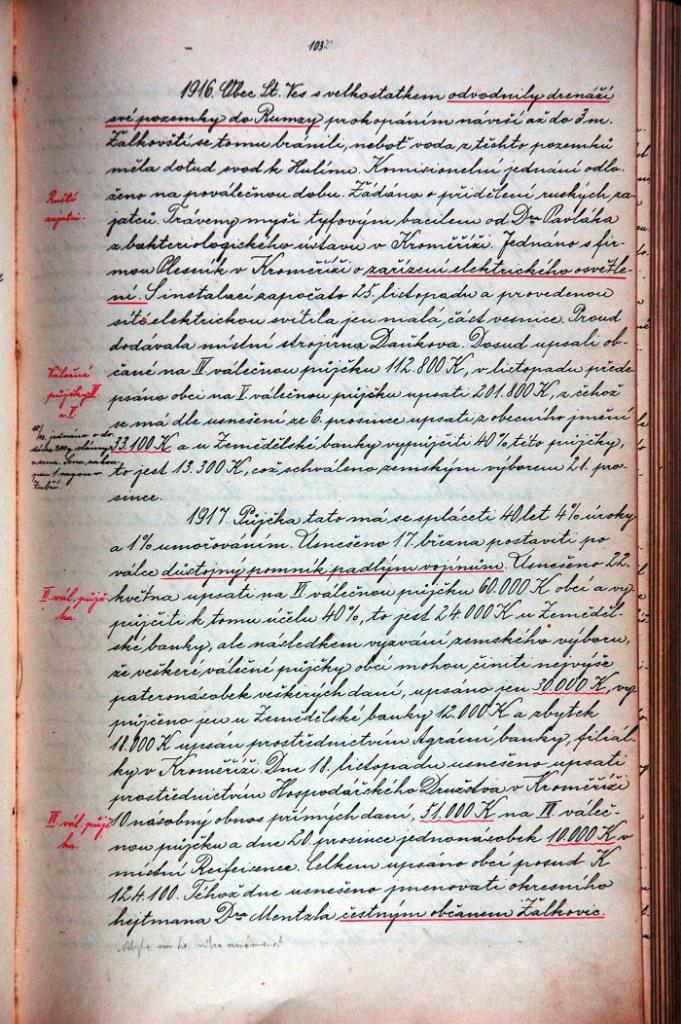 103
1916. Obec St. Ves s velkostatkem odvodnily drenáží
své pozemky do Rumzy prokopáním návrší až do 3 m.
Žalkovští se tomu bránili, neboť voda z těchto pozemků
měla dotud svod k Hulínu. Komisionelní jednání odlo-
ženo na poválečnou dobu. Žádáno o přidělení ruských za-
Ruští
zajatci.
jatců. Tráveny myši tyfovým bacilem od Dra Pavláka
z bakteriologického ústavu v Kroměříži. Jednáno s fir-
mou Plesník v Kroměříži o zařízení elektrického osvětle-
ní. S instalací započato 25. listopadu a provedenou
sítí elektrickou svítila jen malá část vesnice. Proud
dodávala místní strojírna Daňkova. Dosud upsali ob-
Válečné
půjčky IV
a V.
čané na IV válečnou půjčku 112.800 K, v listopadu přede-
psáno obci na V. válečnou půjčku upsati 201.800 K, z čehož
se má dle usnešení ze 6. prosince upsati z obecního jmění
33.100 K a u Zemědělské banky vypůjčiti 40% této půjčky,
jednáno o do-
to jest 13.300 K, což schváleno zemským výborem 21. pro-
since.
1917. Půjčka tato má se spláceti 40 let 4% úroky
a 1% umořováním. Usnešeno 17. března postaviti po
válce důstojný pomník padlým vojínům. Usneseno 22.
VI. vál. půjč-
ka.
května upsati na VI válečnou půjčku 60.000 K obcí a vy-
půjčiti k tomu účelu 40%, to jest 24.000 K u Zeměděl-
ské banky, ale následkem vyzvání zemského výboru,
že veškeré válečné půjčky obcí mohou činiti nejvýše
pateronásobek veškerých daní, upsáno jen 30.000 K, vy-
půjčeno jen u Zemědělské banky 12.000 K a zbytek
18.000 K upsán prostřednictvím Agrární banky, filiál-
ky v Kroměříži. Dne 18. listopadu usnešeno upsati
prostřednictvím Hospodářského Družstva v Kroměříži
vál. půjč-
ka.
10 násobný obnos přímých daní, 51.000 K na válečnou
nou půjčku a dne 20. prosince jednonásobek 10.000 K v
místní Reifeisence. Celkem upsáno obcí posud K
124.100. Téhož dne usnešeno jmenovati okresního
hejtmana Dra Mentzla čestným občanem Žalkovic.